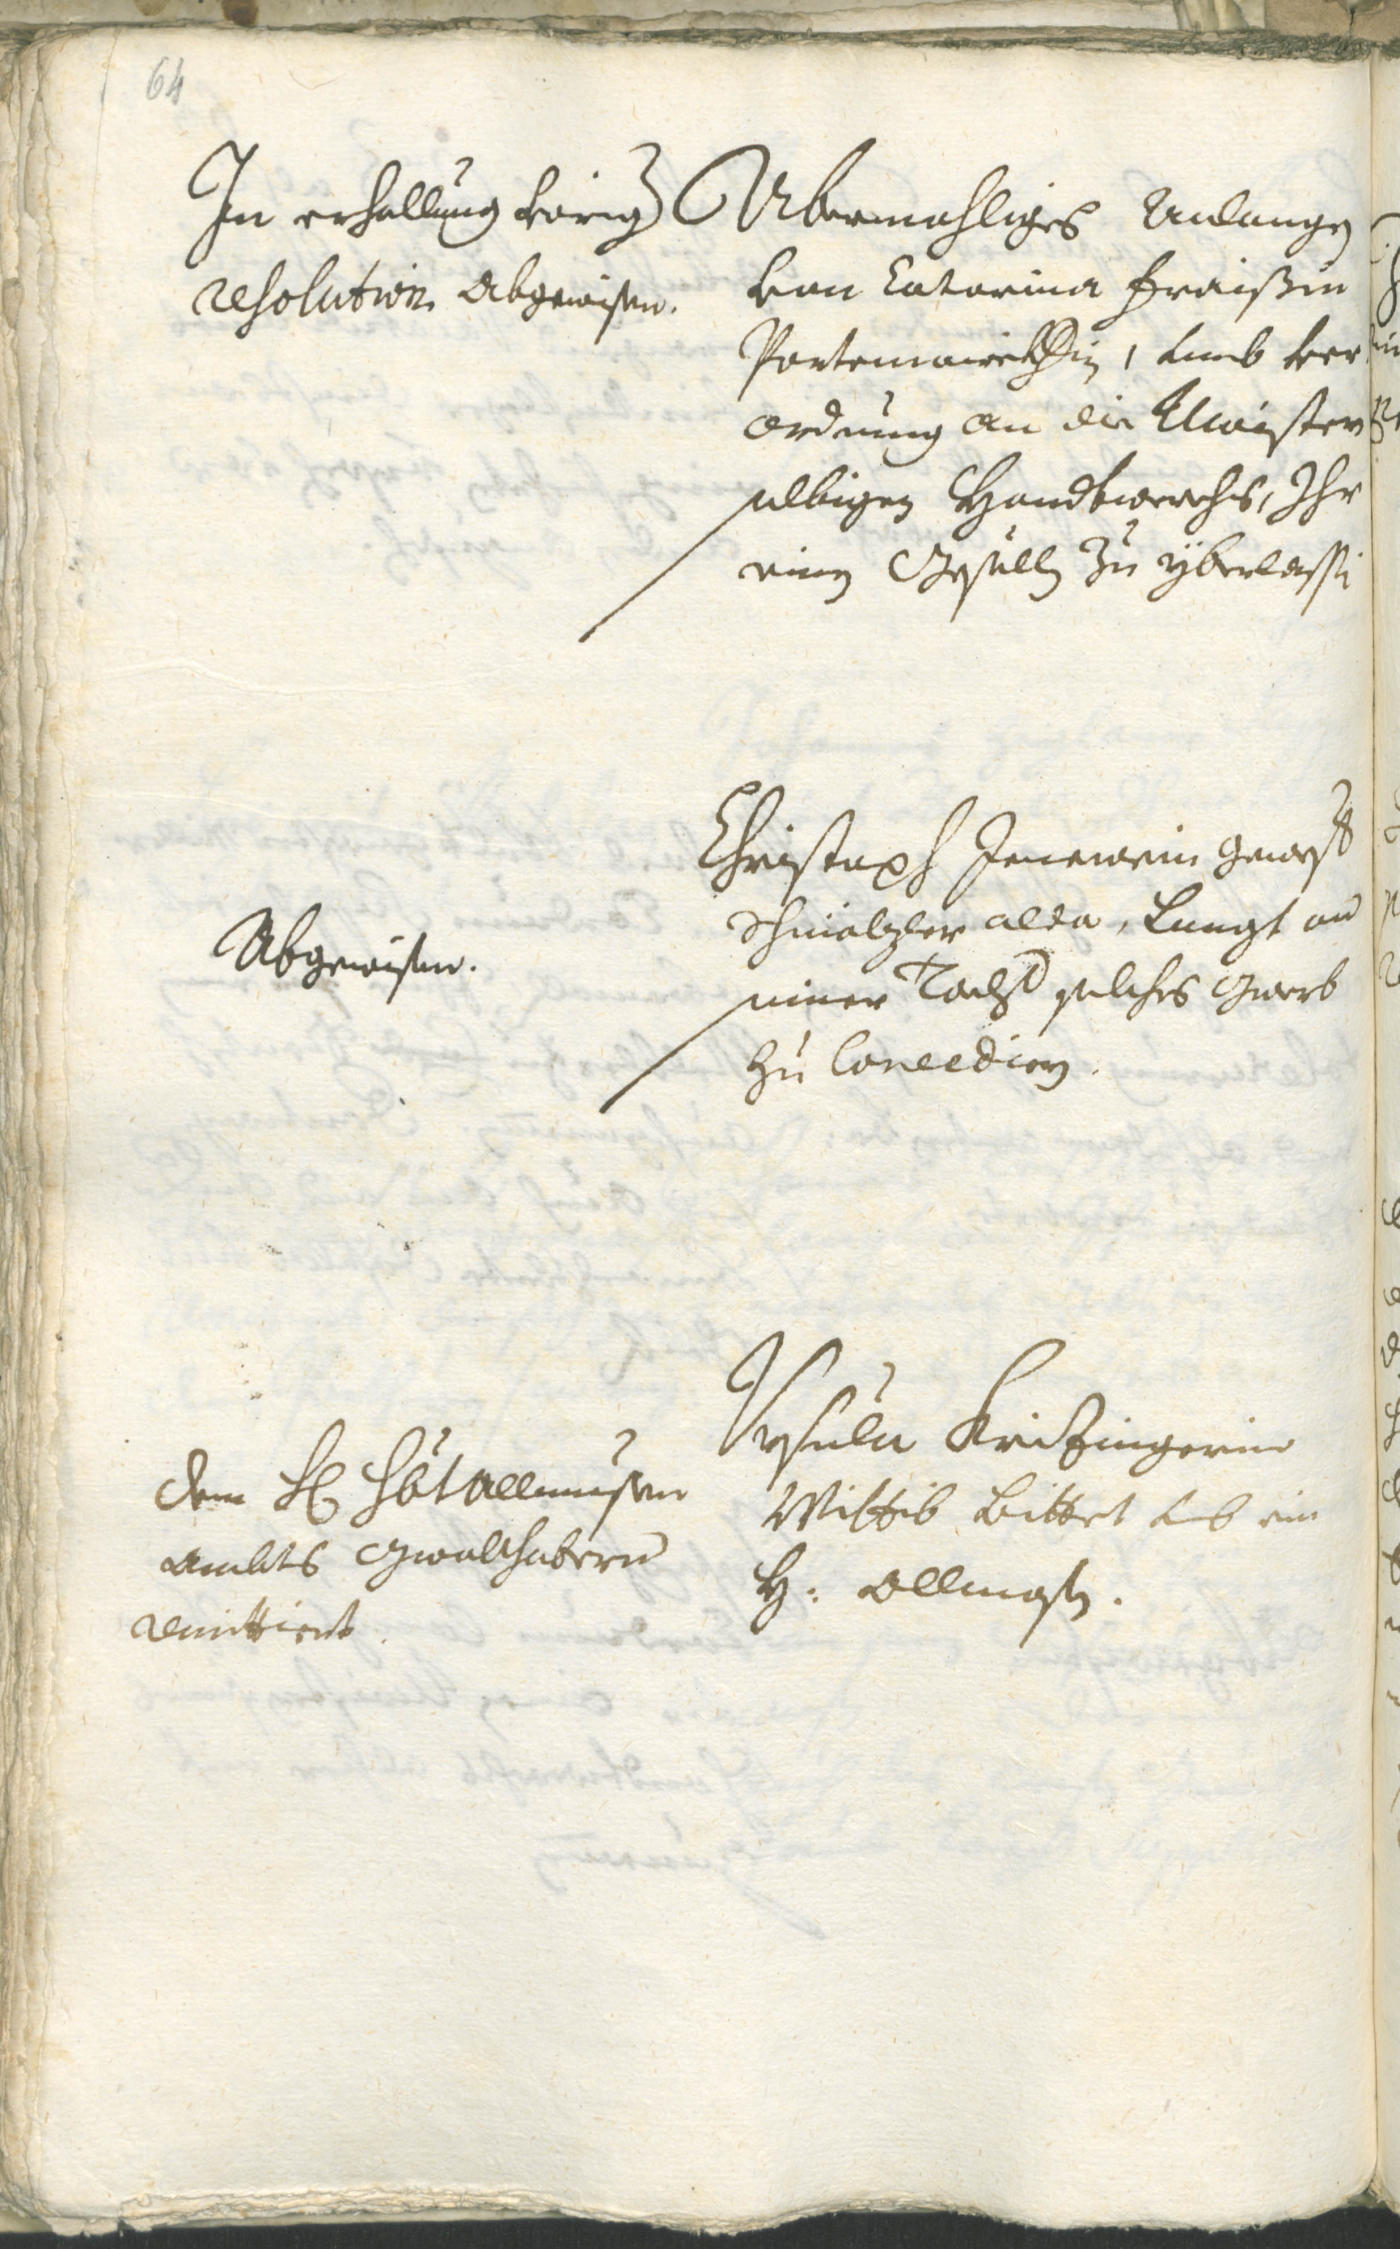 64
In erhallung vorig
resolution abgewisen.
Abermahliges Anlangen
von Catarina Fraißin
Portenwirchin, umb ver
ordnung an die Maister
selbigen Handtwerchs, Ihr
einen Gesellen zu yberlassen
Abgewisen.
Christoph Jenewein gewest
Schmalzler alda, Langt an
seiner solches Gwerb
zu Concediern.
Dem H. Allmuesen
ambts Gwalthabern
remittiert.
Ursula Krizingerin
Wittib bittet umb ein
H: Allmosen.